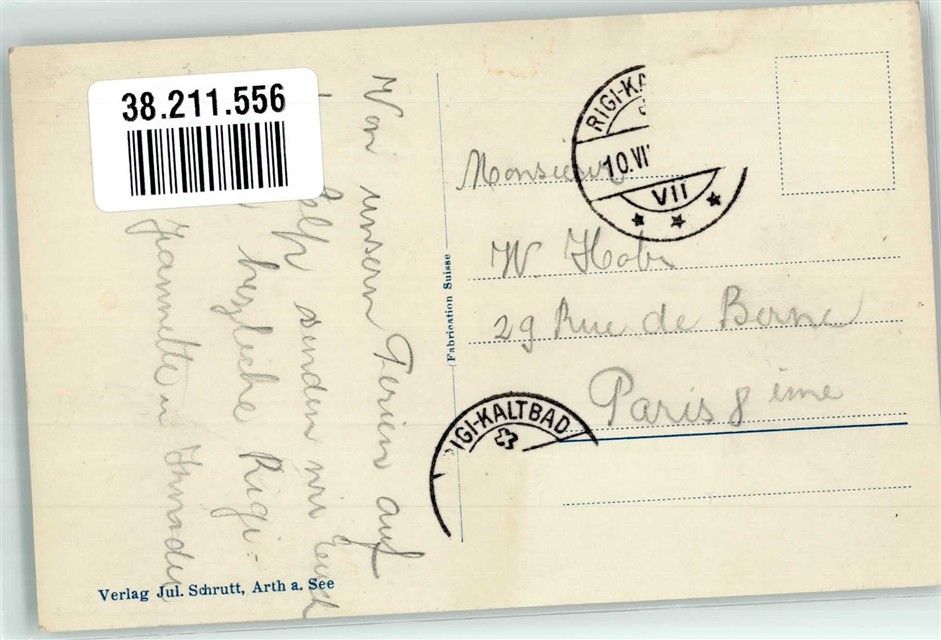 38.211.556
Von unsern Ferien auf
senden wir Euch
herzliche Rigi-
Jeannette u
(Fabrication Suisse
RIGI-KA
10.VI
VII
Monsieur
W.
29 Rue de Berne
Paris 8 ième
IGI-KALTBAD
Verlag Jul. Schrutt, Arth a. See